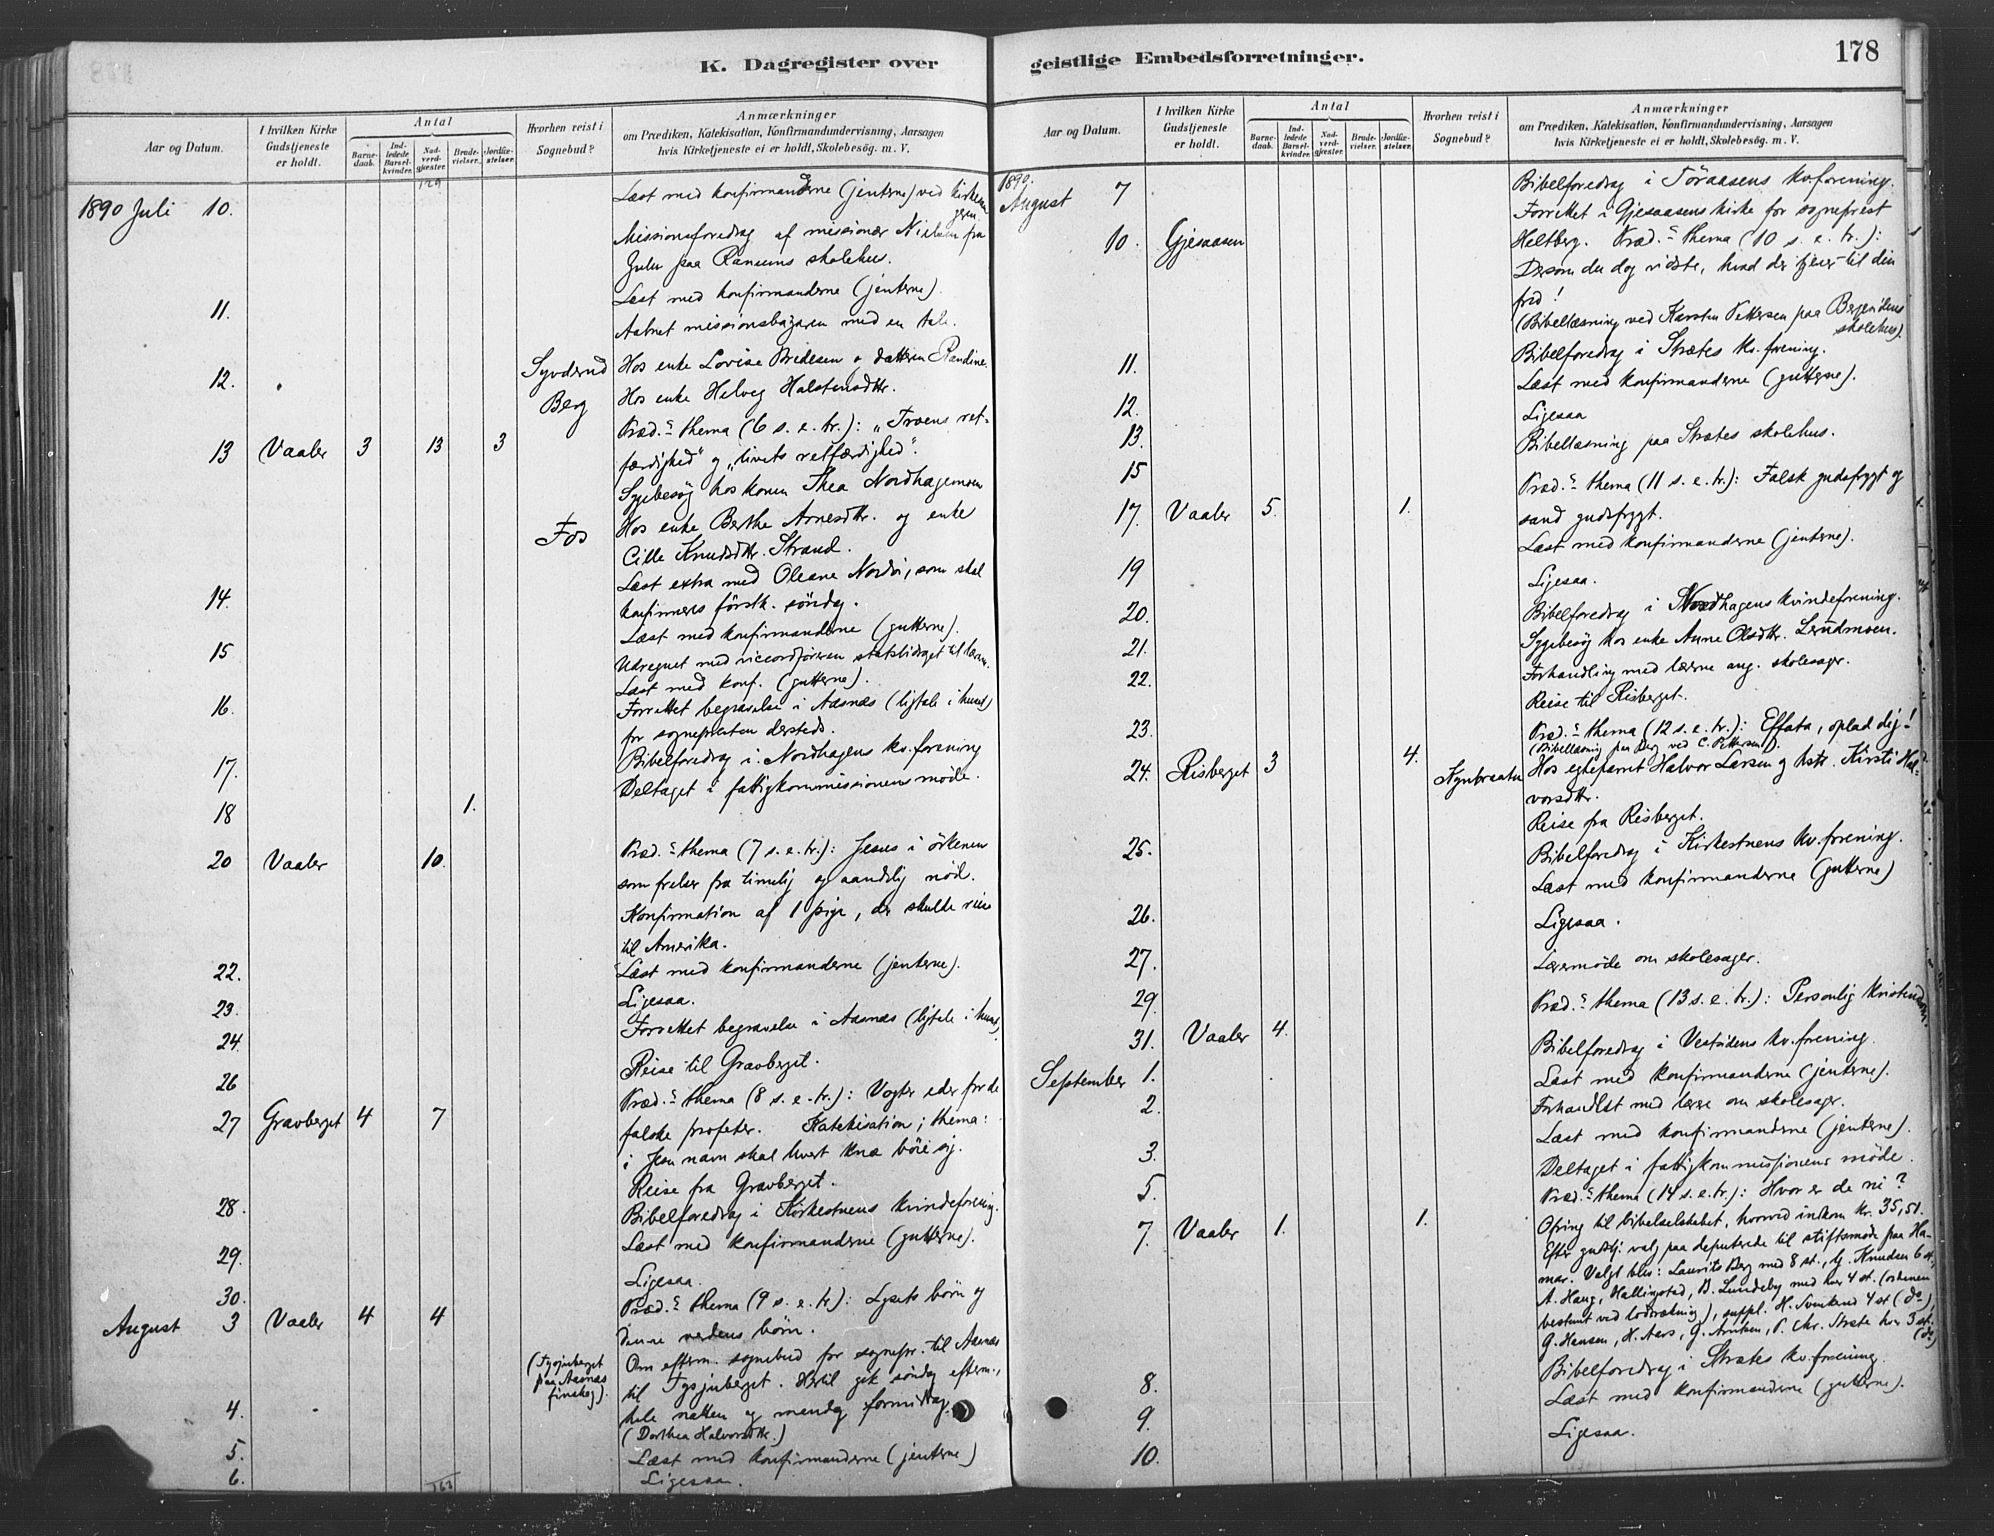 178
K. Dagregister over
geistlige Embedsforretninger.
Aar og Datum.
I hvilken Kirke Gudstjeneste er holdt.
Antal
Barne-daab.
Ind-ledede Barsel-kvinder.
Nad-verd-gjester.
Brude-vielser.
Jordfæ-stelser.
Hvorhen reist i Sognebud?
Anmærkninger
om Prædiken, Katekisation, Konfirmandundervisning, Aarsagen
hvis Kirketjeneste ei er holdt, Skolebesög. m. V.
129
1890 Juli 10. Læst med konfirmanderne (jenterne) ved kirkesangeren
Missionsforedrag af missionær Nielsen fra
Zulu paa Ranums skolehus.
11. Læst med konfirmanderne (jenterne).
Aabnet missionsbazaren med en tale.
12. Syverud Hos enke Lovise Bredesen og datteren Randine.
Berg Hos enke Helveg Halstensdtr.
13 Vaaler 3 13 3 Præd.s thema (6 s. e. tr.): „Troens ret-
færdighed" og „livets retfærdighed".
Sygebesög hos konen Thea Nordhagenmoen
Fos Hos enke Berthe Arnesdtr. og enke
Cille Knudsdtr. Strand.
14. Læst extra med Oleane Nordöi, som skal
konfirmeres förstk. söndag.
15 Læst med konfirmanderne (gutterne).
Udregnet med statsbidraget til
16. Læst med konf. (gutterne).
Forrettet begravelse i Aasnæs (ligtale i huset)
for sognepresten dersteds.
17. Bibelforedrag i Nordhagens kv. forening
18 1. Deltaget i fattigkommissionens möde.
20 Vaaler 10. Præd.s thema (7 s. e. tr.): Jesus i örkenen
som frelser fra timelig og aandelig nöd.
Konfirmation af 1 pige, der skulde reise
til Amerika.
22. Læst med konfirmanderne (jenterne).
23. Ligesaa.
24. Forrettet begravelse i Aasnæs (ligtale i huset)
26 Reise til Gravberget.
27 Gravberget 4 7 Præd.s thema (8 s. e. tr.): Vogter eder for de
falske profeter. Katekisation; thema:
i Jesu navn skal hvert knæ böie sig.
28. Reise fra Gravberget.
Bibelforedrag i Kirkestuens kvindeforening.
29. Læst med konfirmanderne (gutterne).
30. Ligesaa.
August 3 Vaaler 4 4 Præd.s thema (9 s. e. tr.): Lysets börn og
denne verdens börn.
(Tysjuberget paa Aasnæs finskog). Om efterm. sognebud for sognepr. til Aasnæs
til Tysjuberget. Hertil gik söndag efterm.,
4. hele natten og mandag formiddag.
(Dorthea Halvorsdtr.)
5. Læst med konfirmanderne (jenterne)
6. Ligesaa.
163
Aar og Datum.
I hvilken Kirke Gudstjeneste er holdt.
Antal
Barne-daab.
Ind-ledede Barsel-kvinder.
Nad-verd-gjester.
Brude-vielser.
Jordfæ-stelser.
Hvorhen reist i Sognebud?
Anmærkninger
om Prædiken, Katekisation, Konfirmandundervisning, Aarsagen
hvis Kirketjeneste ei er holdt, Skolebesög. m. V.
1890.
August 7 Bibelforedrag i Töraasens kv.forening.
10. Gjesaasen Forrettet i Gjesaasens kirke for sogneprest
Heltberg. Præd.s thema (10 s. e. tr.):
Dersom du dog vidste, hvad der tjener til din
fred!
(Bibellæsning ved Karsten Pettersen paa Bergendens skolehus).
11. Bibelforedrag i Stræetes kv. forening.
12. Læst med konfirmanderne (gutterne).
13. Ligesaa
15 Bibellæsning paa Strætes skolehus.
17. Vaaler 5. 1. Præd.s thema (11 s. e. tr.): Falsk gudsfrygt og
sand gudsfrygt.
19 Læst med konfirmanderne (jenterne).
20. Ligesaa.
21. Bibelforedrag i Nordhagens kvindeforening.
Sygebesög hos enke Anne Olsdtr.
22. Forhandling med lærerne ang. skolesager.
23. Reise til Risberget.
24. Risberget 3 4. Præd.s thema (12 s. e. tr.): Effata, oplad dig!
(Bibellæsning paa Berg ved C. Pettersen).
Nynbraaten Hos egtefarnt Halvor Larsen og hstr. Kirsti Hal-
vorsdtr.
25. Reise fra Risberget.
Bibelforedrag i Kirkestuens kv. forening.
26. Læst med konfirmanderne (gutterne)
27. Ligesaa.
29. Læremöde om skolesager.
31. Vaaler 4. Præd.s thema (13 s. e. tr.): Personlig kristendom.
September 1. Bibelforedrag i Vestsidens kv. forening.
2. Læst med konfirmanderne (jenterne).
Forhandlet med lærere om skolesager.
3. Læst med konfirmanderne (jenterne).
5. Deltaget i fattigkommissionens möde.
7. Vaaler 1. 1. Præd.s thema (14 s. e. tr.): Hvor er de ni?
Ofring til bibelselskabet, hvorved indkom kr. 35,51.
Efter gudstj. valg paa deputerede til stiftsmöde paa Ha-
mar. Valgt blev: Laurits Berg med 8 st., Knudsen 6 st.,
A. Haug, Hallingstad, B. Lundeby med hver 4 st. (ordenen
bestemt ved lodtrækning), suppl. H. 4 st (do),
G. Hansen, H. Aas, G. Arntsen, P. Chr. Stræte hver 3 st.
(do)
8. Bibelforedrag i Strætes kv. forening.
9. Læst med konfirmanderne (gutterne).
10. Ligesaa.